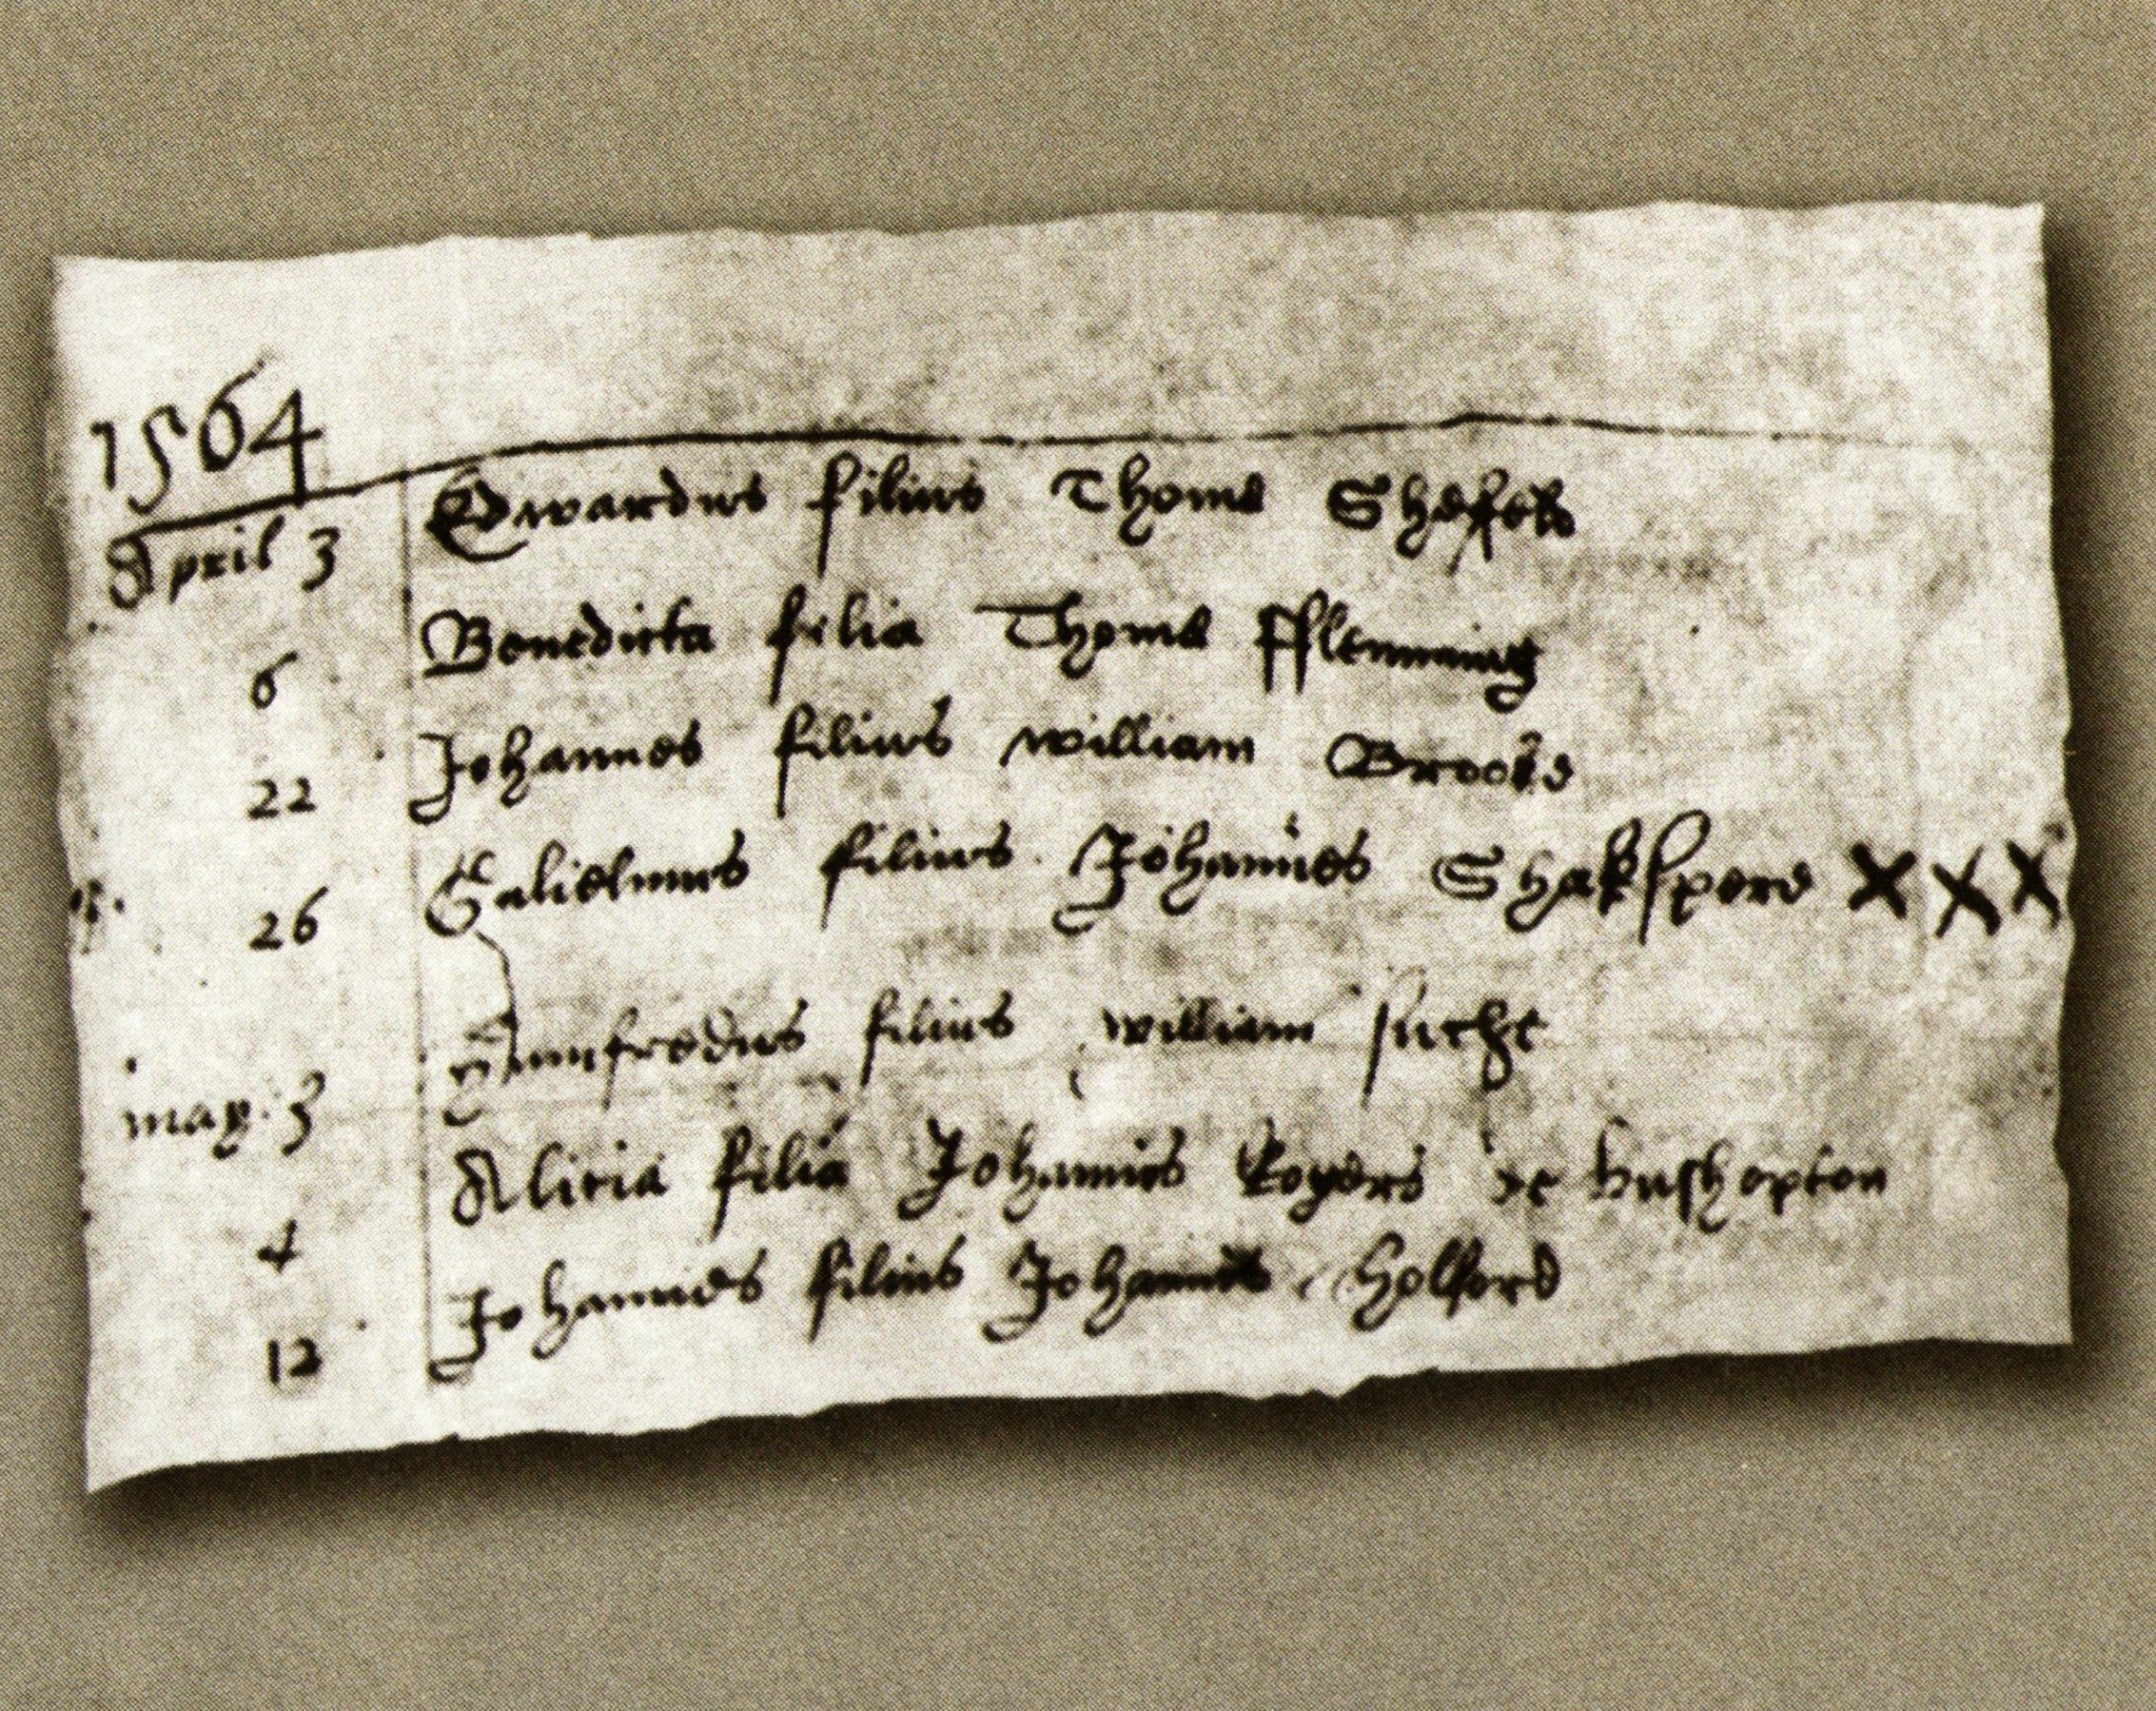 1564
April 3 Edwardus filius Thome Shefeld
6 Benedicta filia Thome Fflemming
22 Johannes filius william Brooks
26 Gulielmus filius Johannes Shakspere XXX
may 3 filius william
4 Alicia filia Johannis Rogers de
12 Johannes filius Johannis Holford